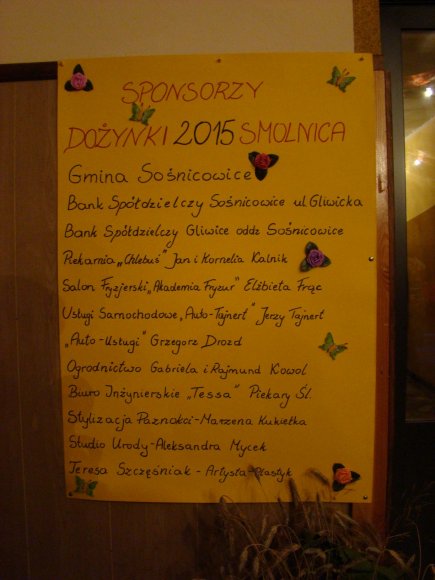 SPONSORZY
DOŻYNKI 2015 SMOLNICA
Gmina Sośnicowice
Bank Spółdzielczy Sośnicowice ul Gliwicka
Bank Spółdzielczy Gliwice oddz Sośnicowice
Piekarnia „Chlebuś" Jan i Kornelia Kalnik
Salon Fryzjerski „Akademia Fryzur" Elżbieta Frąc
Usługi Samochodowe „Auto-Tajnert" Jerzy Tajnert
„Auto-Usługi" Grzegorz Drozd
Ogrodnictwo Gabriela i Rajmund Kowol
Biuro Inżynierskie „Tessa" Piekary Śl.
Stylizacja Paznokci-Marzena Kukiełka
Studio Urody-Aleksandra Mycek
Teresa Szczęśniak - Artysta-Plastyk